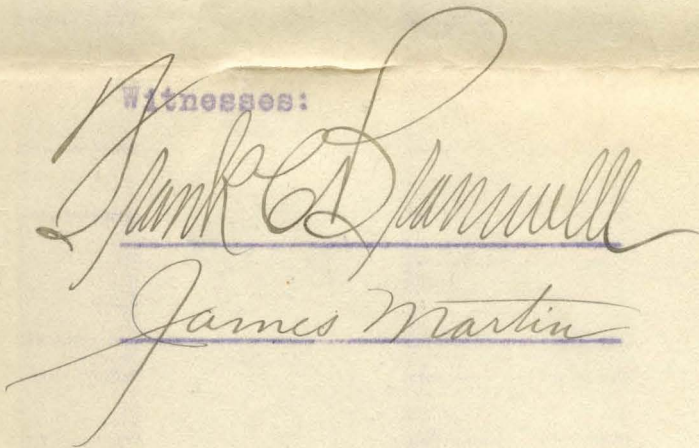 Witnesses:
Frank C Bramwell
James Martin